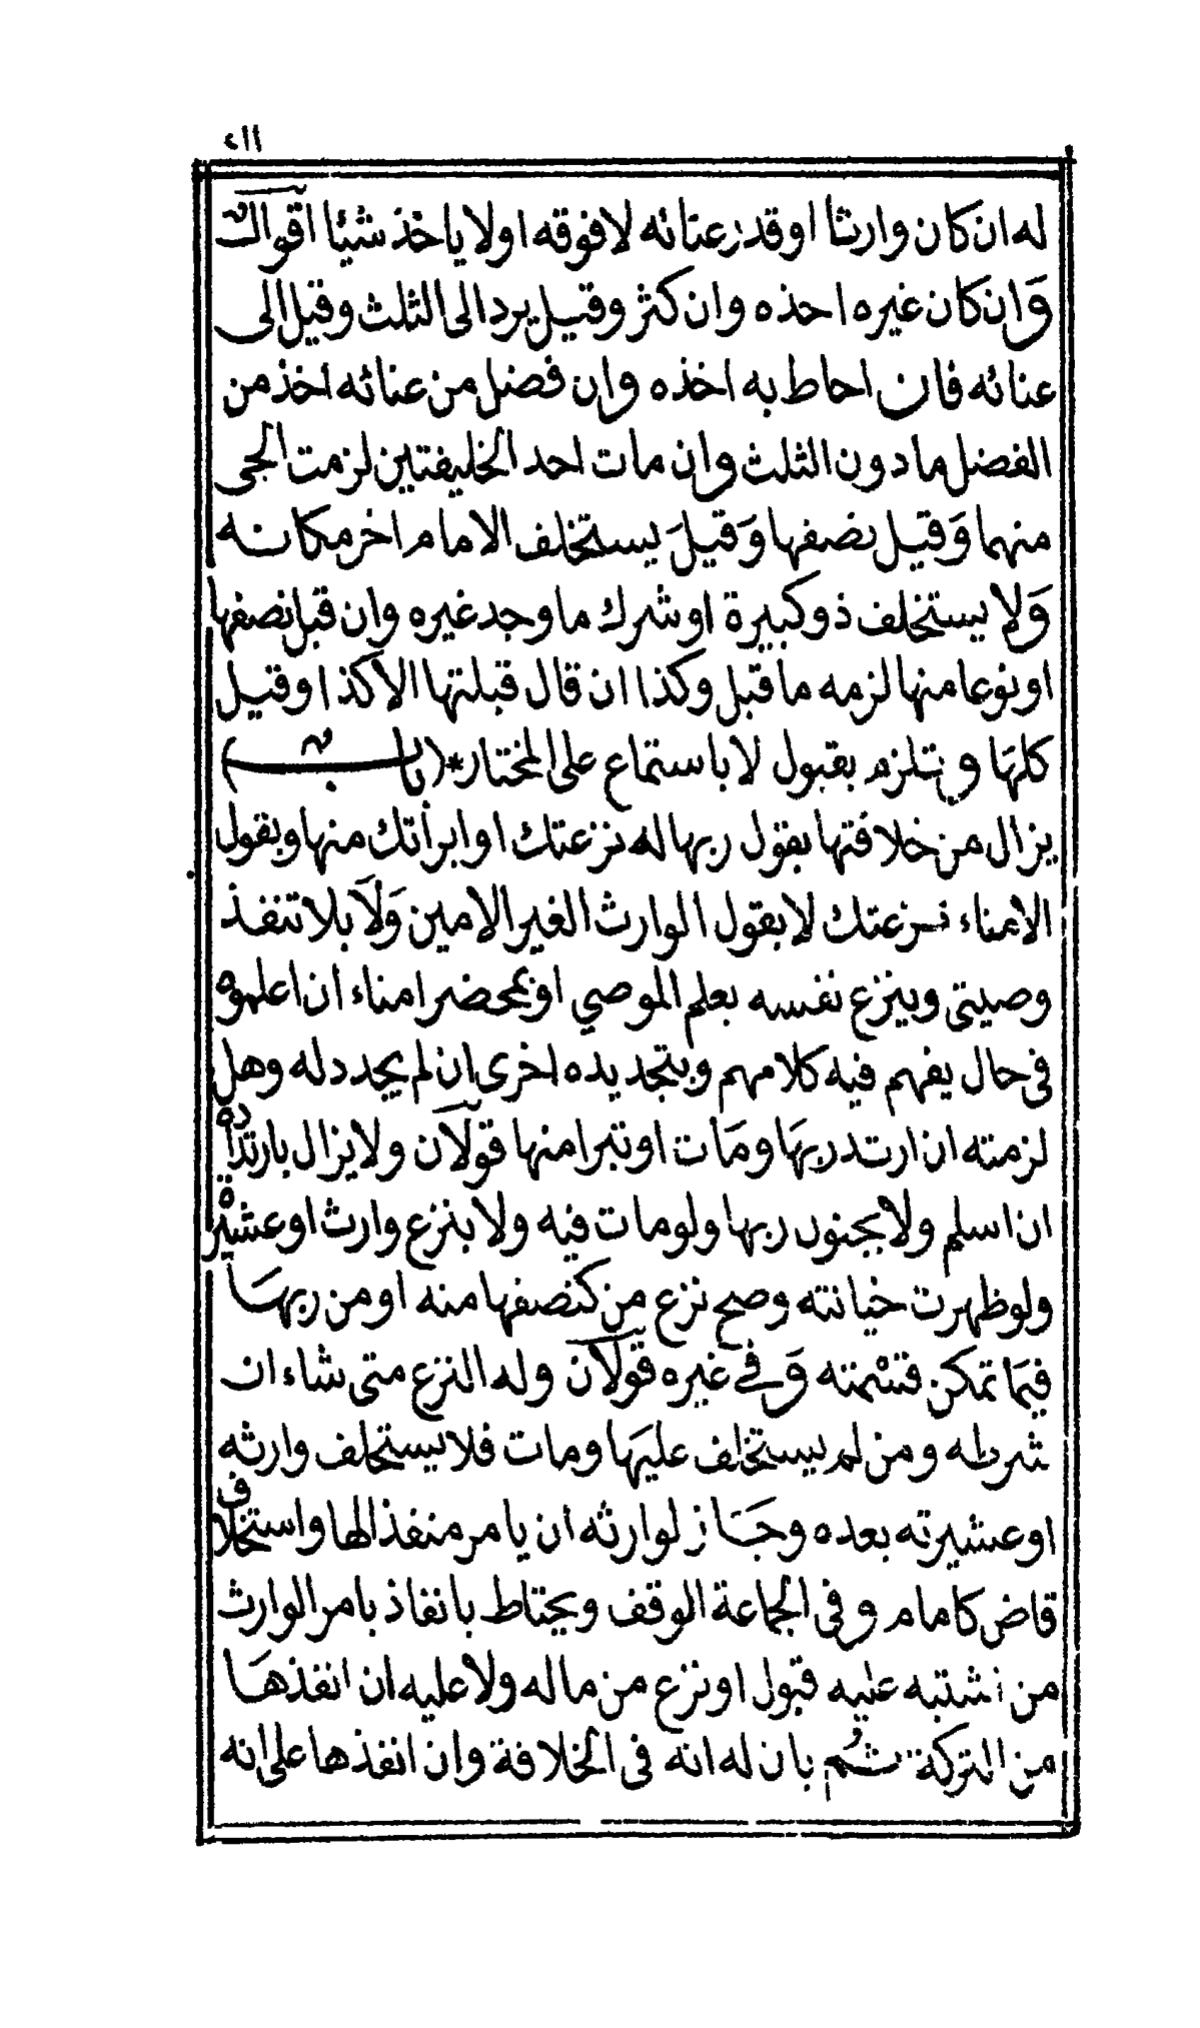 ٢١١
له ان كان وارثا او قدر عنائه لا فوقه او لا ياخذ شيئا اقوال
وَان كان غيره اخذه وان كثر وقيل يرد الى الثلث وقيل الى
عنائه فان احاط به اخذه وان فضل من عنائه اخذ من
الفضل ما دون الثلث وان مات احد الخليفتين لزمت الحي
منهما وَقيل نصفها وَقيلَ يستخلف الامام اخر مكانه
وَلا يستخلف ذو كبيرة او شرك ما وجد غيره وان قبل نصفها
او نوعا منها لزمه ما قبل وكذا ان قال قبلتها الا كذا وقيل
كلهَا وتلزم بقبول لا باستماع على المختار*(باب)
يزال من خلافتها بقول ربها له نزعتك او ابرأتك منها وبقول
الامناء نزعتك لا بقول الوارث الغير الامين وَلَا بلا تنفذ
وصيتى وبنزع نفسه بعلم الموصي او بمحضر امناء ان اعلموه
فى حال يفهم فيه كلامهم وبتجديده اخرى ان لم يجدد له وهل
لزمته ان ارتد ربهَا ومَات او تبرا منها قولَان ولا يزال بارتداده
ان اسلم ولا بجنون ربها ولو مات فيه ولا بنزع وارث او عشيرة
ولو ظهرت خيانته وصح نزع من كنصفها منه او من ربهَا
فيمَا تمكن قسْمته وَفي غيره قولَان وله النزع متى شاء ان
شرطه ومن لم يستخلف عليهَا ومات فلا يستخلف وارثه
او عشيرته بعده وجَاز لوارثه ان يامر منفذا لها واستخلاف
قاض كامام وفى الجماعة الوقف ويحتاط بانفاذ بامر الوارث
من اشتبه عليه قبول او نزع من ماله ولا عليه ان انفذهَا
من التركة ثُم بان له انه فى الخلافة وان انفذها على انه